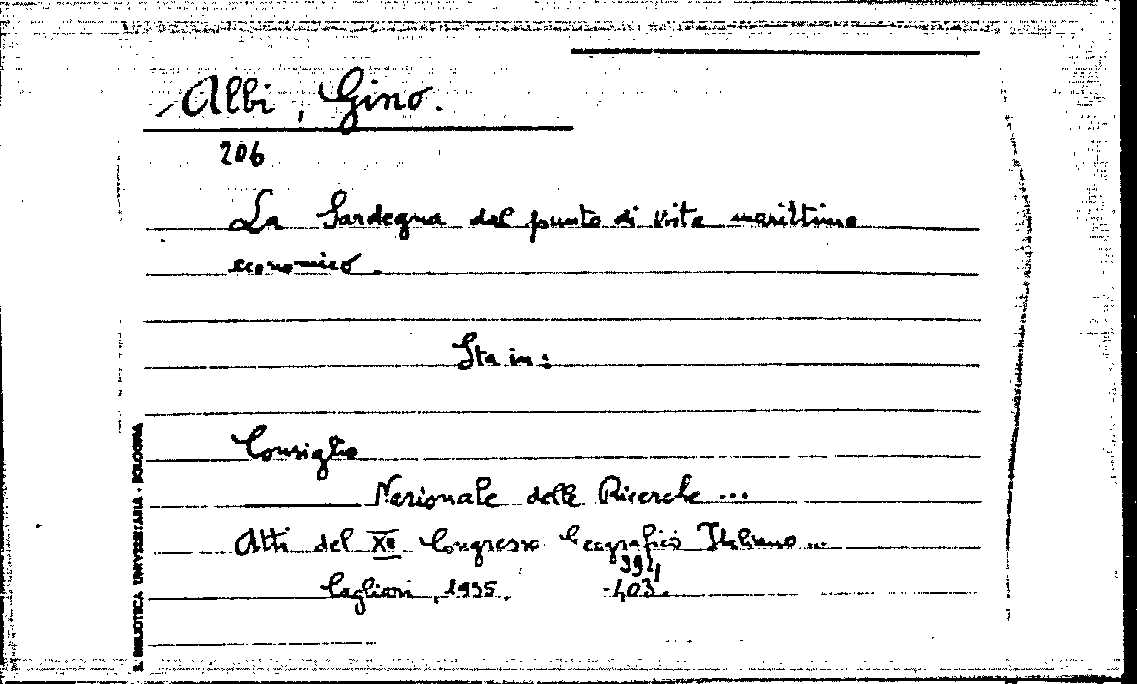 Albi, Gino.
206
La Sardegna dal punto di vista marittimo
economico.
Sta in:
Consiglio
Nazionale delle Ricerche ...
Atti del XII Congresso Geografico Italiano ...
394
Cagliari, 1935. -403.
R. BIBLIOTECA UNIVERSITARIA - BOLOGNA